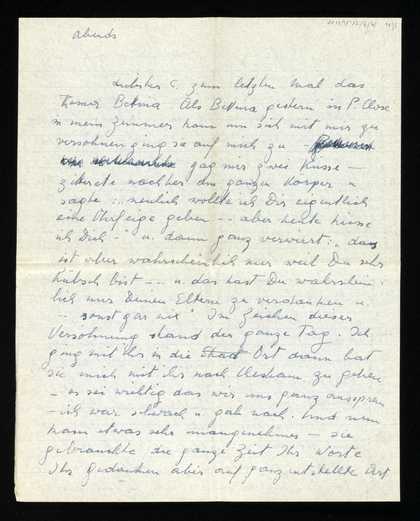 abends
Liebster C. zum letzten Mal das
Thema Bettina Als Bettina gestern in P. Close
in mein Zimmer kam um sich mit mir zu
versöhnen ging sie auf mich zu –
gab mir zwei Küsse –
zitterte nachher am ganzen Körper u
sagte: "neulich wollte ich Dir eigentlich
eine Ohrfeige geben – – aber heute küsse
ich Dich –" u. dann ganz verwirrt: "das
ist aber wahrscheinlich nur weil Du sehr
hübsch bist – – u. das hast Du wahrschein-
lich nur Deinen Eltern zu verdanken u.
– sonst gar nix" Im Zeichen dieser
Versöhnung stand der ganze Tag. Ich
ging mit ihr in die Stadt Ort dann bat
sie mich mit ihr nach zu gehen
– es sei wichtig das wir uns ganz aussprechen
– ich war schwach u. gab nach. Und nun
kam etwas sehr unangenehmes – sie
gebrauchte die ganze Zeit Ihr Worte
Ihr Gedanken aber auf ganz entstellte Art